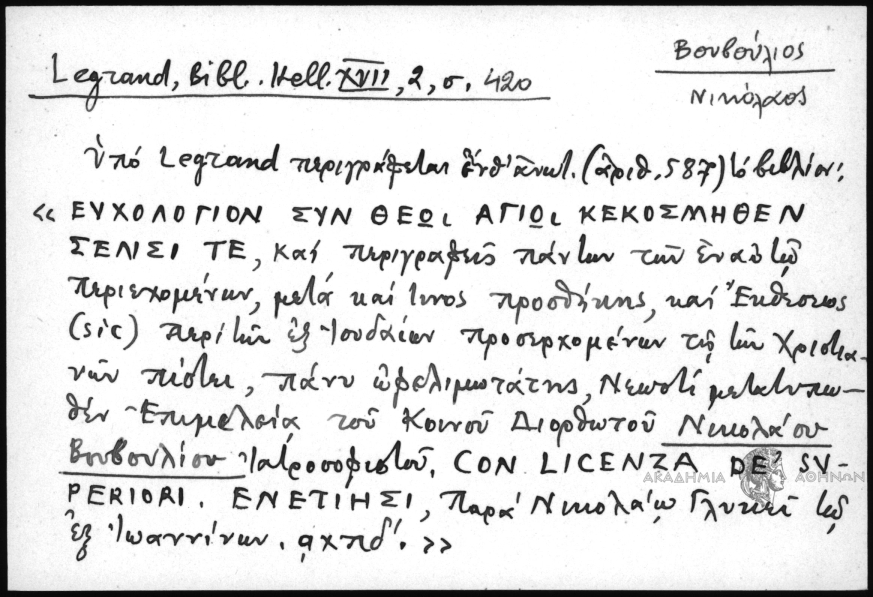 Βουβούλιος
Νικόλαος
Legrand, Bibl. Hell. XVII, 2, σ. 420
ὑπό Legrand περιγράφεται ἔνθ' ἀνωτ. (ἀριθ. 587) τό βιβλίον:
« ΕΥΧΟΛΟΓΙΟΝ ΣΥΝ ΘΕΩι ΑΓΙΩι ΚΕΚΟΣΜΗΘΕΝ
ΣΕΛΙΣΙ ΤΕ, καί περιγραφεῖς πάντων τῶν ἐν αὐτῷ
περιεχομένων, μετά καί τινος προσθήκης, καί Ἐκθέσεως
(sic) περί τῶν ἐξ Ἰουδαίων προσερχομένων τῇ τῶν Χριστια-
νῶν πίστει, πάνυ ὠφελιμωτάτης, Νεωστί μετατυπω-
θέν Ἐπιμελείᾳ τοῦ Κοινοῦ Διορθωτοῦ Νικολάου
Βουβουλίου Ἰατροσοφιστοῦ. CON LICENZA DE' SV-
PERIORI. ΕΝΕΤΙΗΣΙ, παρά Νικολάῳ Γλυκεῖ τῷ
ἐξ Ἰωαννίνων. αχπδ'. »
ΑΚΑΔΗΜΙΑ ΑΘΗΝΩΝ